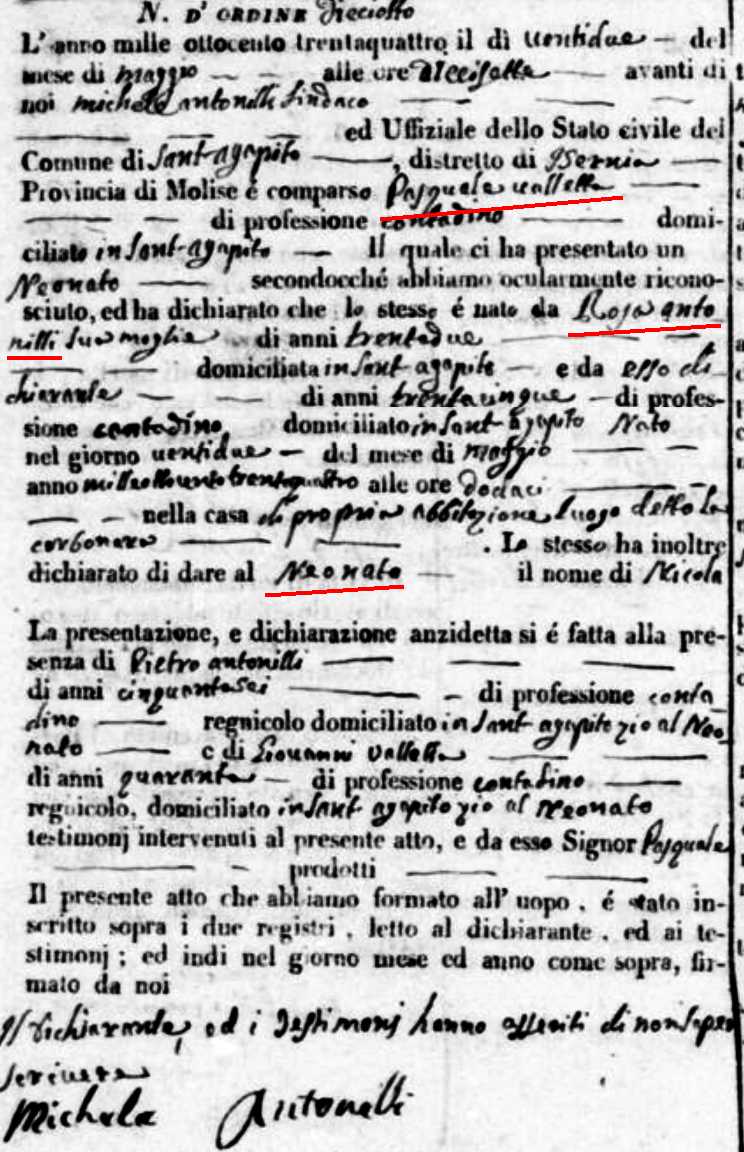 N. D' ORDINE dieciotto
L'anno mille ottocento trentaquattro il dì ventidue del
mese di maggio alle ore diecisette avanti di
noi michele antonilli Sindaco
ed Uffiziale dello Stato civile del
Comune di Sant-agapito, distretto di Isernia
Provincia di Molise é comparso Pasquale valletta
di professione contadino domi-
ciliato in Sant-agapito Il quale ci ha presentato un
Neonato secondocché abbiamo ocularmente ricono-
sciuto, ed ha dichiarato che lo stesso é nato da Rosa anto
nilli sua moglie di anni trentadue
domiciliata in Sant-agapito e da esso di
chiarante di anni trentacinque di profes-
sione contadino domiciliato in Sant-agapito Nato
nel giorno ventidue del mese di maggio
anno milleottocentotrentaquattro alle ore dodeci
nella casa di propria abbitazione luogo detto la
corbonara . Lo stesso ha inoltre
dichiarato di dare al Neonato il nome di Nicola
La presentazione, e dichiarazione anzidetta si é fatta alla pre-
senza di Pietro antonilli
di anni cinquantasei di professione conta
dino regnicolo domiciliato in Sant agapito zio al Neo
nato e di Giovanni valletta
di anni quaranta di professione contadino
regnicolo, domiciliato in Sant agapito zio al neonato
testimonj intervenuti al presente atto, e da esso Signor Pasquale
prodotti
Il presente atto che abbiamo formato all' uopo , é stato in-
scritto sopra i due registri , letto al dichiarante , ed ai te-
stimonj ; ed indi nel giorno mese ed anno come sopra, fir-
mato da noi
Il dichiarante, ed i testimonj hanno asseriti di non saper
scrivere
Michele Antonelli